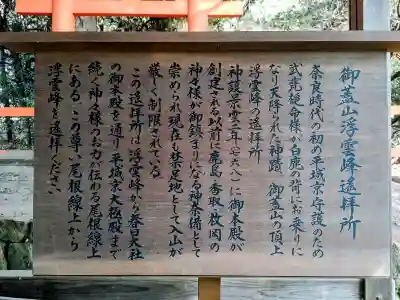 御蓋山浮雲峰遥拝所
奈良時代の初め平城京守護のため
武甕槌命様が白鹿の背にお乗りに
なり天降られた神蹟、御蓋山の頂上
浮雲峰の遥拝所
神護景雲二年(七六八)に御本殿が
創建される以前に鹿島・香取・枚岡の
神々様が御鎮まりになる神奈備として
崇められ現在も禁足地として入山が
厳しく制限されている
この遥拝所は浮雲峰から春日大社
の御本殿を通り平城京大極殿まで
続く神々様のお力が伝わる尾根線上
にある。この尊い尾根線上から
浮雲峰を遥拝ください。